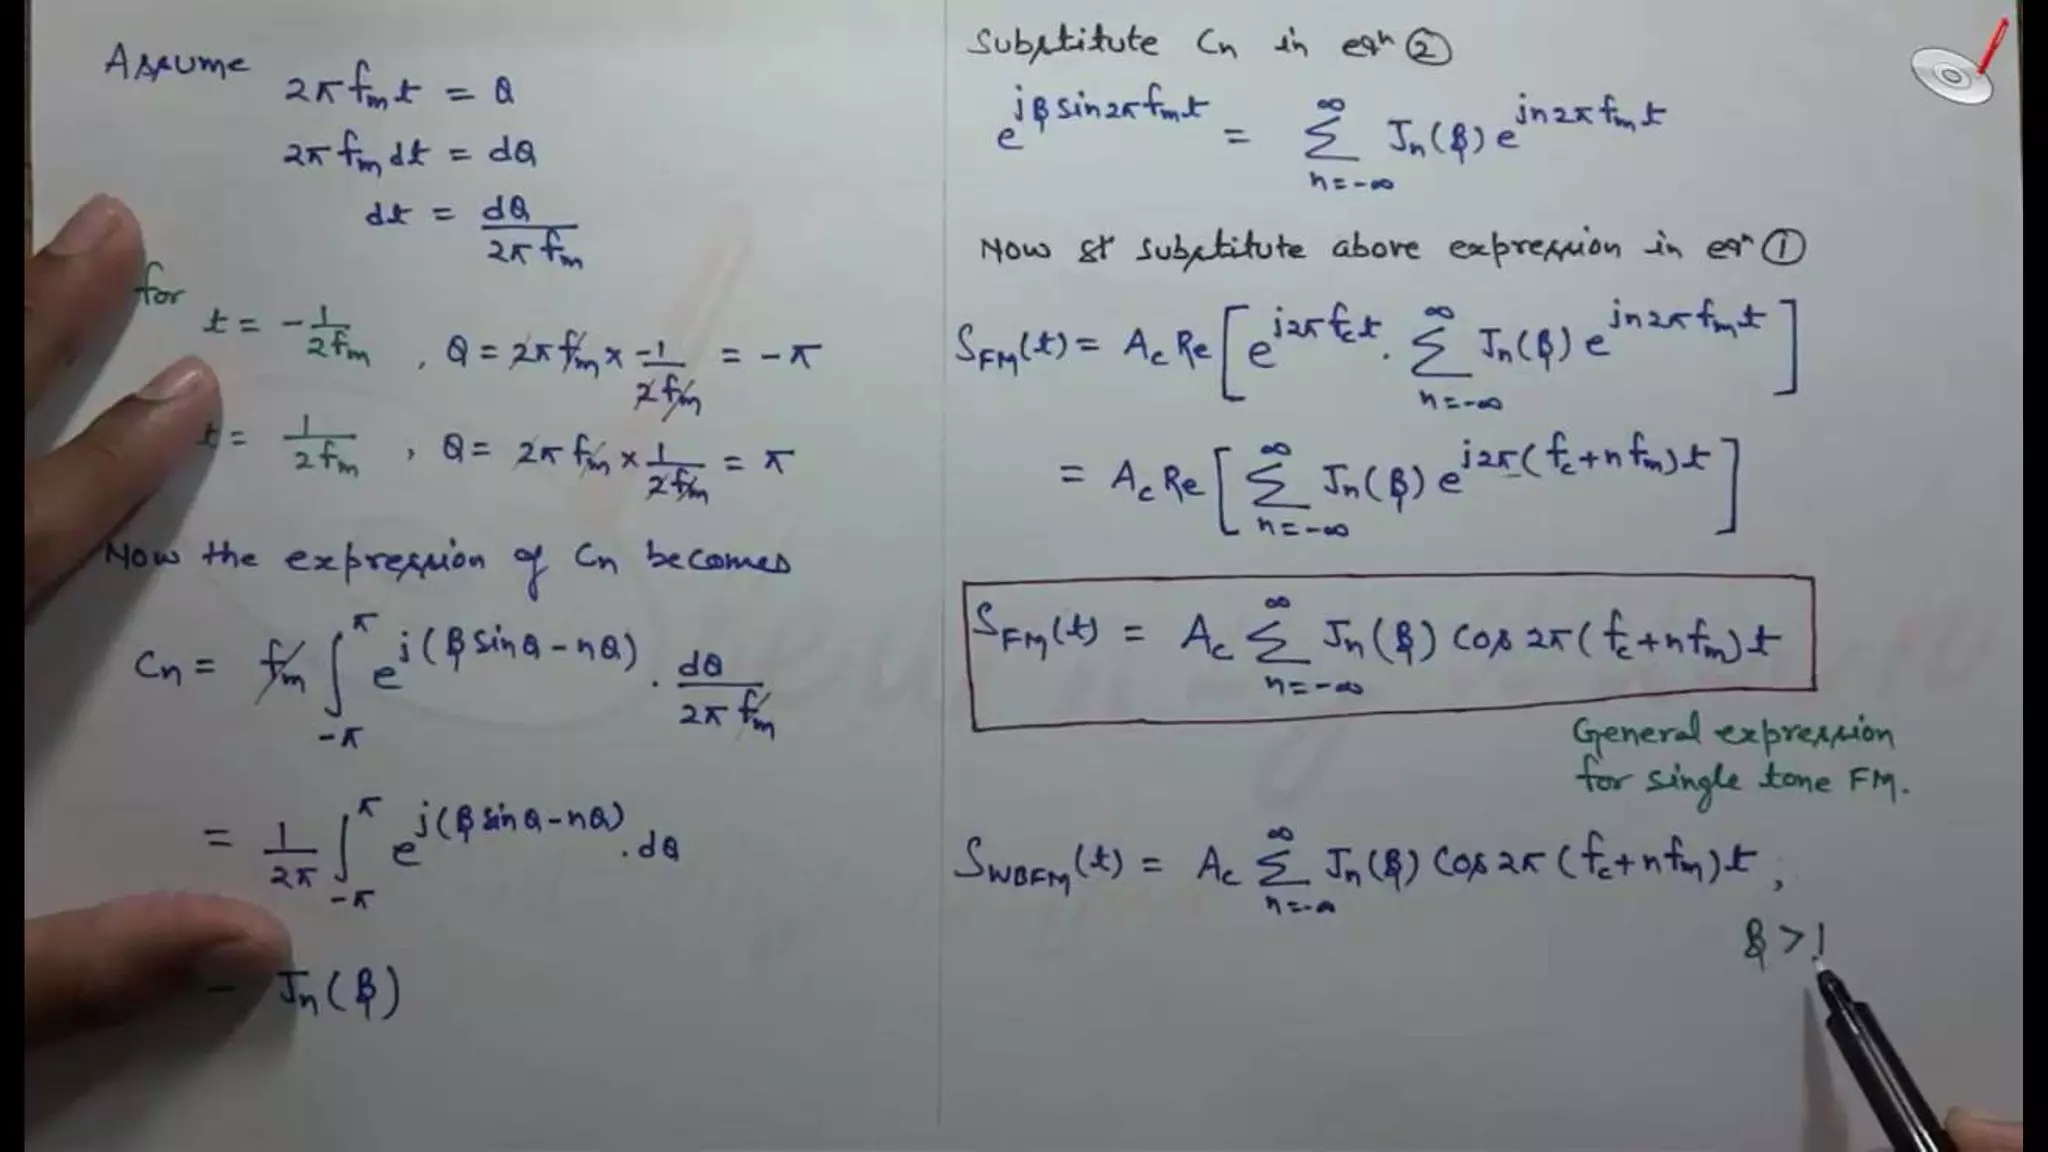 Assume
2π fm t = θ
2π fm dt = dθ
dt = dθ / 2π fm
for
t = -1/2fm , θ = 2π fm × -1/2fm = -π
t = 1/2fm , θ = 2π fm × 1/2fm = π
Now the expression of Cn becomes
Cn = fm ∫_{-π}^{π} e^{j(β sinθ - nθ)} . dθ / 2π fm
= 1/2π ∫_{-π}^{π} e^{j(β sinθ - nθ)} . dθ
= Jn(β)
Substitute Cn in eqn ②
e^{jβ sin2π fm t} = Σ_{n=-∞}^{∞} Jn(β) e^{jn2π fm t}
Now substitute above expression in eqn ①
S_FM(t) = Ac Re [ e^{j2π fc t} . Σ_{n=-∞}^{∞} Jn(β) e^{jn2π fm t} ]
= Ac Re [ Σ_{n=-∞}^{∞} Jn(β) e^{j2π(fc+nfm)t} ]
S_FM(t) = Ac Σ_{n=-∞}^{∞} Jn(β) Cos 2π(fc+nfm)t
General expression
for single tone FM.
S_WBFM(t) = Ac Σ_{n=-∞}^{∞} Jn(β) Cos 2π(fc+nfm)t ;
β > 1